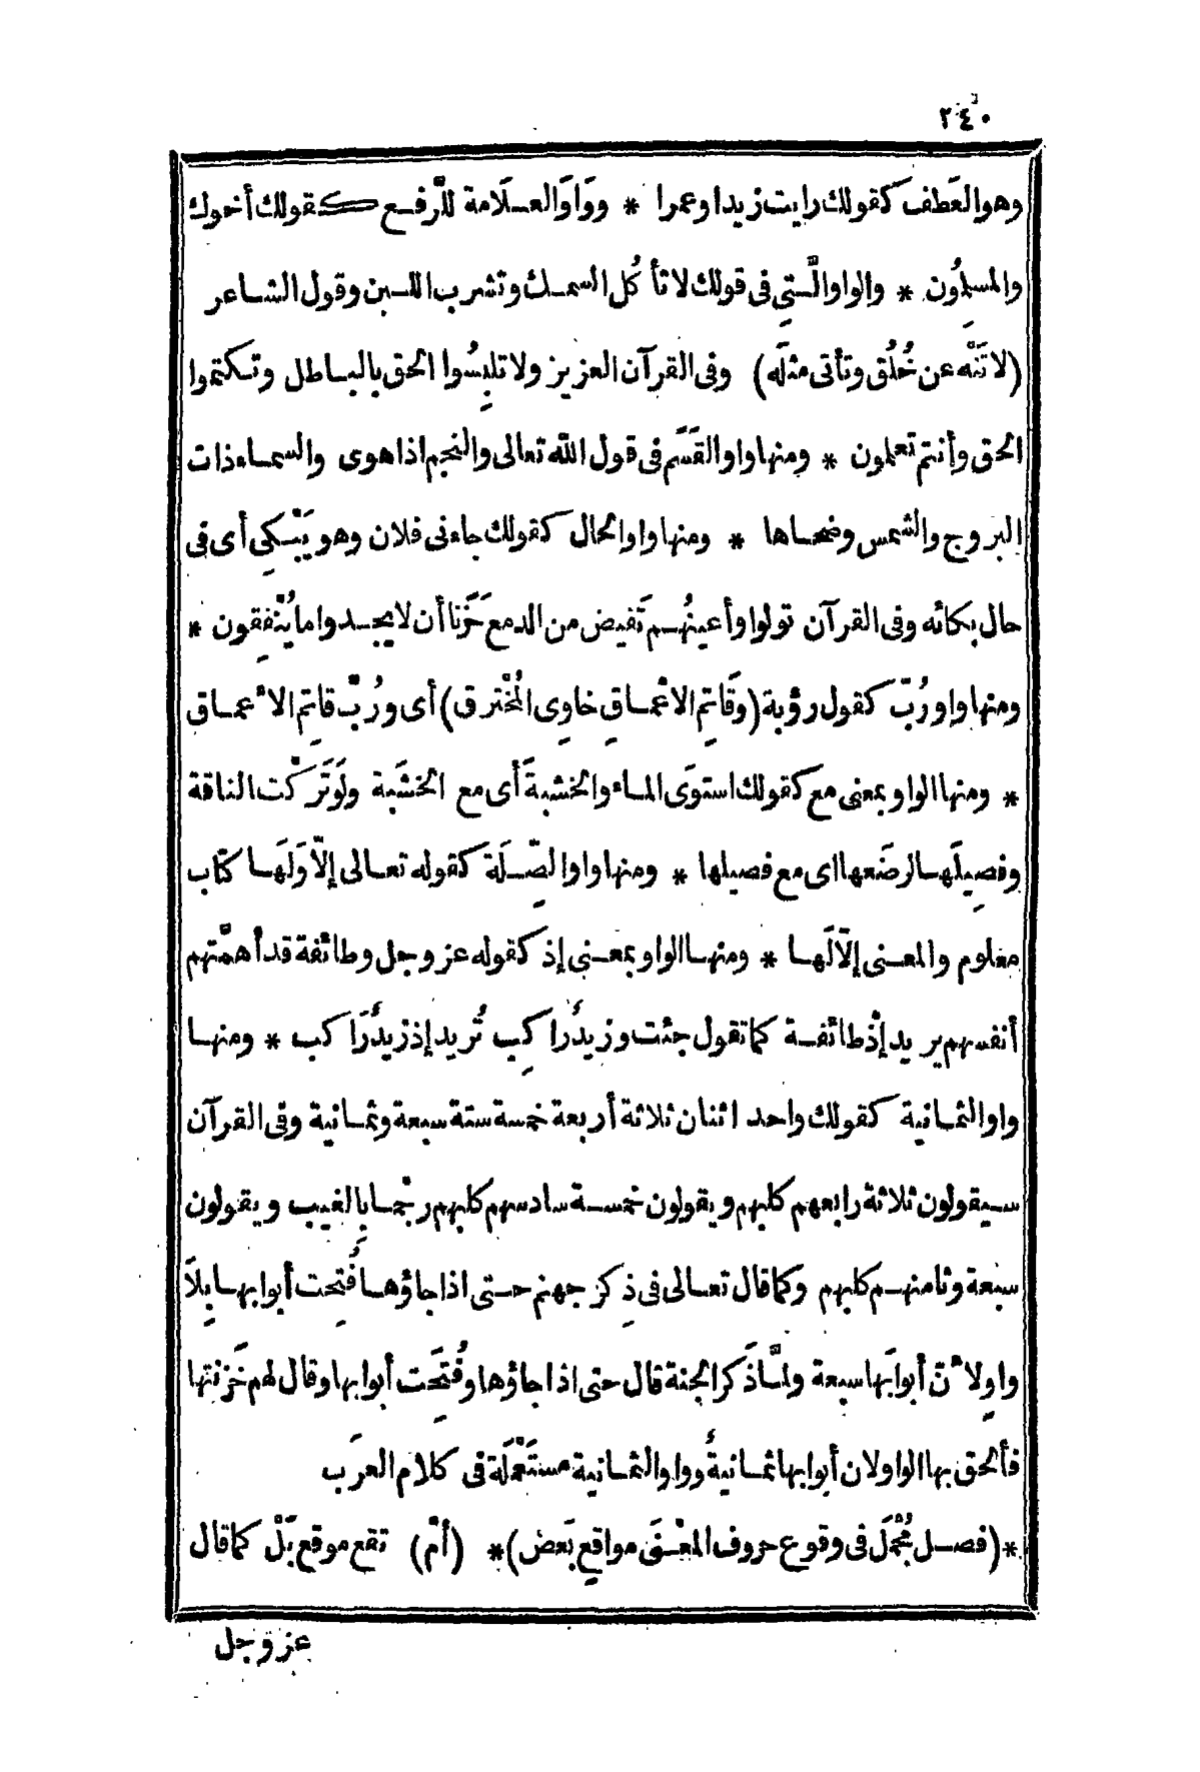 ٢٤٠
وهو العَطف كقولك رايت زيدا وعمرا * ووَاوَ العسلَامة للرَّفع كقولك أخوك
والمسلِمُون * والواو الَّتي فى قولك لا تأ كُل السمك وتشرب اللبن وقول الشاعر
(لا تَنْهَ عن خُلُق وتأتى مثلَه) وفى القرآن العزيز ولا تلبِسُوا الحق بالباطل وتكتموا
الحق وأنتم تعلمون * ومنها واو القَسَم فى قول الله تعالى والنجم اذا هوى والسماء ذات
البروج والشمس وضحاها * ومنها واو الحال كقولك جاءنى فلان وهو يَبْكِى أى فى
حال بكائه وفى القرآن تولوا وأعينُهم تَفيض من الدمع حَزَنا أن لا يجدوا ما يُنْفِقون *
ومنها واو رُبّ كقول رؤبة (وقَاتِمِ الاعْماقِ خاوِى المُخْترق) أى ورُبّ قاتِم الأعماق
* ومنها الواو بمعنى مع كقولك استوَى الماء والخشبةَ أى مع الخشَبة ولَوتَرَكْت الناقة
وفصِيلَها لرضَعها اى مع فصيلها * ومنها واو الصِّلَة كقوله تعالى إلّا وَلَها كتاب
معلوم والمعنى إلّا لَها * ومنها الواو بمعنى إذ كقوله عز وجل وطائفة قد أهمَّتهم
أنفسهم يريد إذْ طائفة كما تقول جئت وزيدٌ راكِب تُريد إذ زيدٌ رَاكب * ومنها
واو الثمانية كقولك واحد اثنان ثلاثة أربعة خمسة ستة سبعة وثمانية وفى القرآن
سيقولون ثلاثة رابعهم كلبهم ويقولون خمسة سادسهم كلبهم رجْما بالغيب ويقولون
سبْعة وثامنهم كلبهم وكما قال تعالى فى ذِكر جهنم حتى اذا جاؤها فُتِحت أبوابها بِلَا
واوٍ لأنّ أبوابَها سبعة ولمَّا ذَكر الجنة قال حتى اذا جاؤها وفُتِحَت أبوابها وقال لهم خَزنتها
فألحق بها الواو لان أبوابها ثمانيةٌ وواو الثمانية مستَعْمَلة فى كلام العرَب
* (فصل مُجْمَل فى وقوع حروف المعْنَى مواقِع بَعض) * (أمْ) تقع موقع بَلْ كما قال
عز وجل